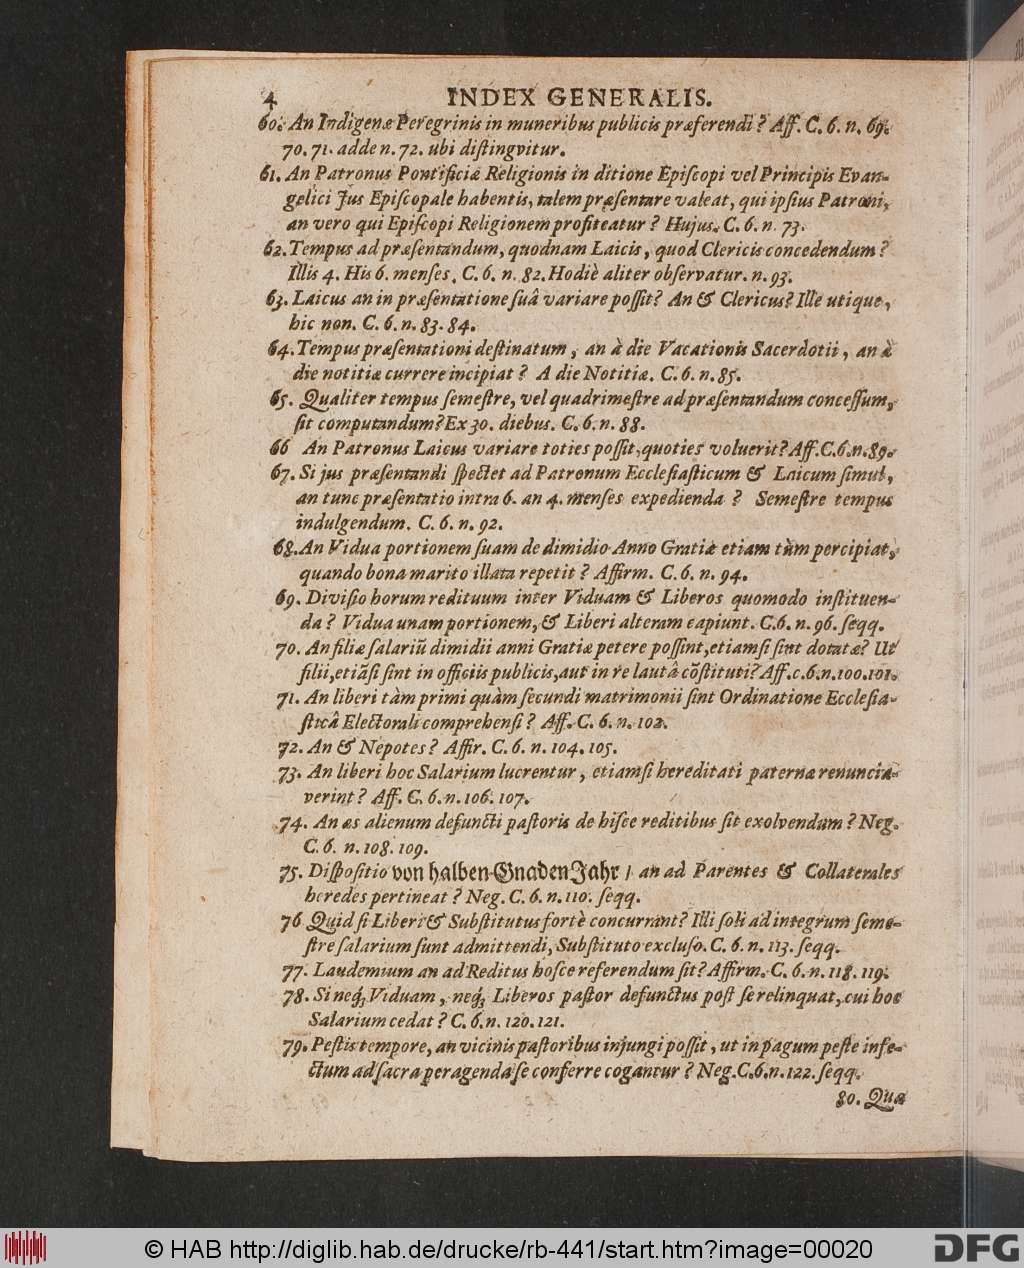 4 INDEX GENERALIS.
60. An Indigenæ Peregrinis in muneribus publicis præferendi? Aff. C. 6. n. 69.
70. 71. adde n. 72. ubi diſtingvitur.
61. An Patronus Pontificiæ Religionis in ditione Epiſcopi vel Principis Evan-
gelici Jus Epiſcopale habentis, talem præſentare valeat, qui ipſius Patroni,
an vero qui Epiſcopi Religionem profiteatur? Hujus. C. 6. n. 73.
62. Tempus ad præſentandum, quodnam Laicis, quod Clericis concedendum?
Illis 4. His 6. menſes. C. 6. n. 82. Hodiè aliter obſervatur. n. 93.
63. Laicus an in præſentatione ſuâ variare poſſit? An & Clericus? Ille utique,
hic non. C. 6. n. 83. 84.
64. Tempus præſentationi deſtinatum, an à die Vacationis Sacerdotii, an à
die notitiæ currere incipiat? A die Notitiæ. C. 6. n. 85.
65. Qualiter tempus ſemeſtre, vel quadrimeſtre ad præſentandum conceſſum,
ſit computandum? Ex 30. diebus. C. 6. n. 88.
66 An Patronus Laicus variare toties poſſit, quoties voluerit? Aff. C. 6. n. 89.
67. Si jus præſentandi ſpectet ad Patronum Eccleſiaſticum & Laicum ſimul,
an tunc præſentatio intra 6. an 4. menſes expedienda? Semeſtre tempus
indulgendum. C. 6. n. 92.
68. An Vidua portionem ſuam de dimidio Anno Gratiæ etiam tùm percipiat,
quando bona marito illata repetit? Affirm. C. 6. n. 94.
69. Diviſio horum redituum inter Viduam & Liberos quomodo inſtituen-
da? Vidua unam portionem, & Liberi alteram capiunt. C. 6. n. 96. ſeqq.
70. An filiæ ſalariũ dimidii anni Gratiæ petere poſſint, etiamſi ſint dotatæ? Ut
filii, etiãſi ſint in officiis publicis, aut in re lautâ cõſtituti? Aff. c. 6. n. 100. 101.
71. An liberi tàm primi quàm ſecundi matrimonii ſint Ordinatione Eccleſia-
ſticâ Electorali comprehenſi? Aff. C. 6. n. 102.
72. An & Nepotes? Affir. C. 6. n. 104. 105.
73. An liberi hoc Salarium lucrentur, etiamſi hereditati paternæ renuncia-
verint? Aff. C. 6. n. 106. 107.
74. An æs alienum defuncti paſtoris de hiſce reditibus ſit exolvendum? Neg.
C. 6. n. 108. 109.
75. Diſpoſitio von halben Gnaden Jahr / an ad Parentes & Collaterales
heredes pertineat? Neg. C. 6. n. 110. ſeqq.
76 Quid ſi Liberi & Subſtitutus fortè concurrant? Illi ſoli ad integrum ſeme-
ſtre ſalarium ſunt admittendi, Subſtituto excluſo. C. 6. n. 113. ſeqq.
77. Laudemium an ad Reditus hoſce referendum ſit? Affirm. C. 6. n. 118. 119.
78. Si neq́; Viduam, neq́; Liberos paſtor defunctus poſt ſe relinquat, cui hoc
Salarium cedat? C. 6. n. 120. 121.
79. Peſtis tempore, an vicinis paſtoribus injungi poſſit, ut in pagum peſte infe-
ctum ad ſacra peragenda ſe conferre cogantur? Neg. C. 6. n. 122. ſeqq.
80. Quæ
© HAB http://diglib.hab.de/drucke/rb-441/start.htm?image=00020
DFG